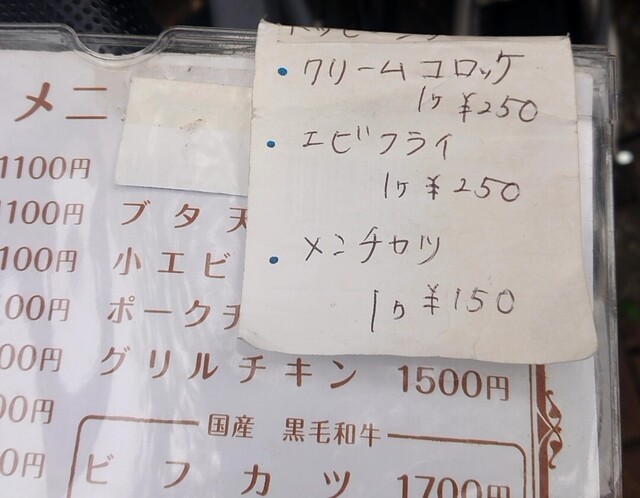 トッピング
・クリームコロッケ
1ケ ¥250
・エビフライ
1ケ ¥250
・メンチカツ
1ケ ¥150
メニ
1100円
1100円 ブタ天
100円 小エビ
00円 ポークチ
00円 グリルチキン 1500円
00円 国産 黒毛和牛
0円 ビフカツ 1700円